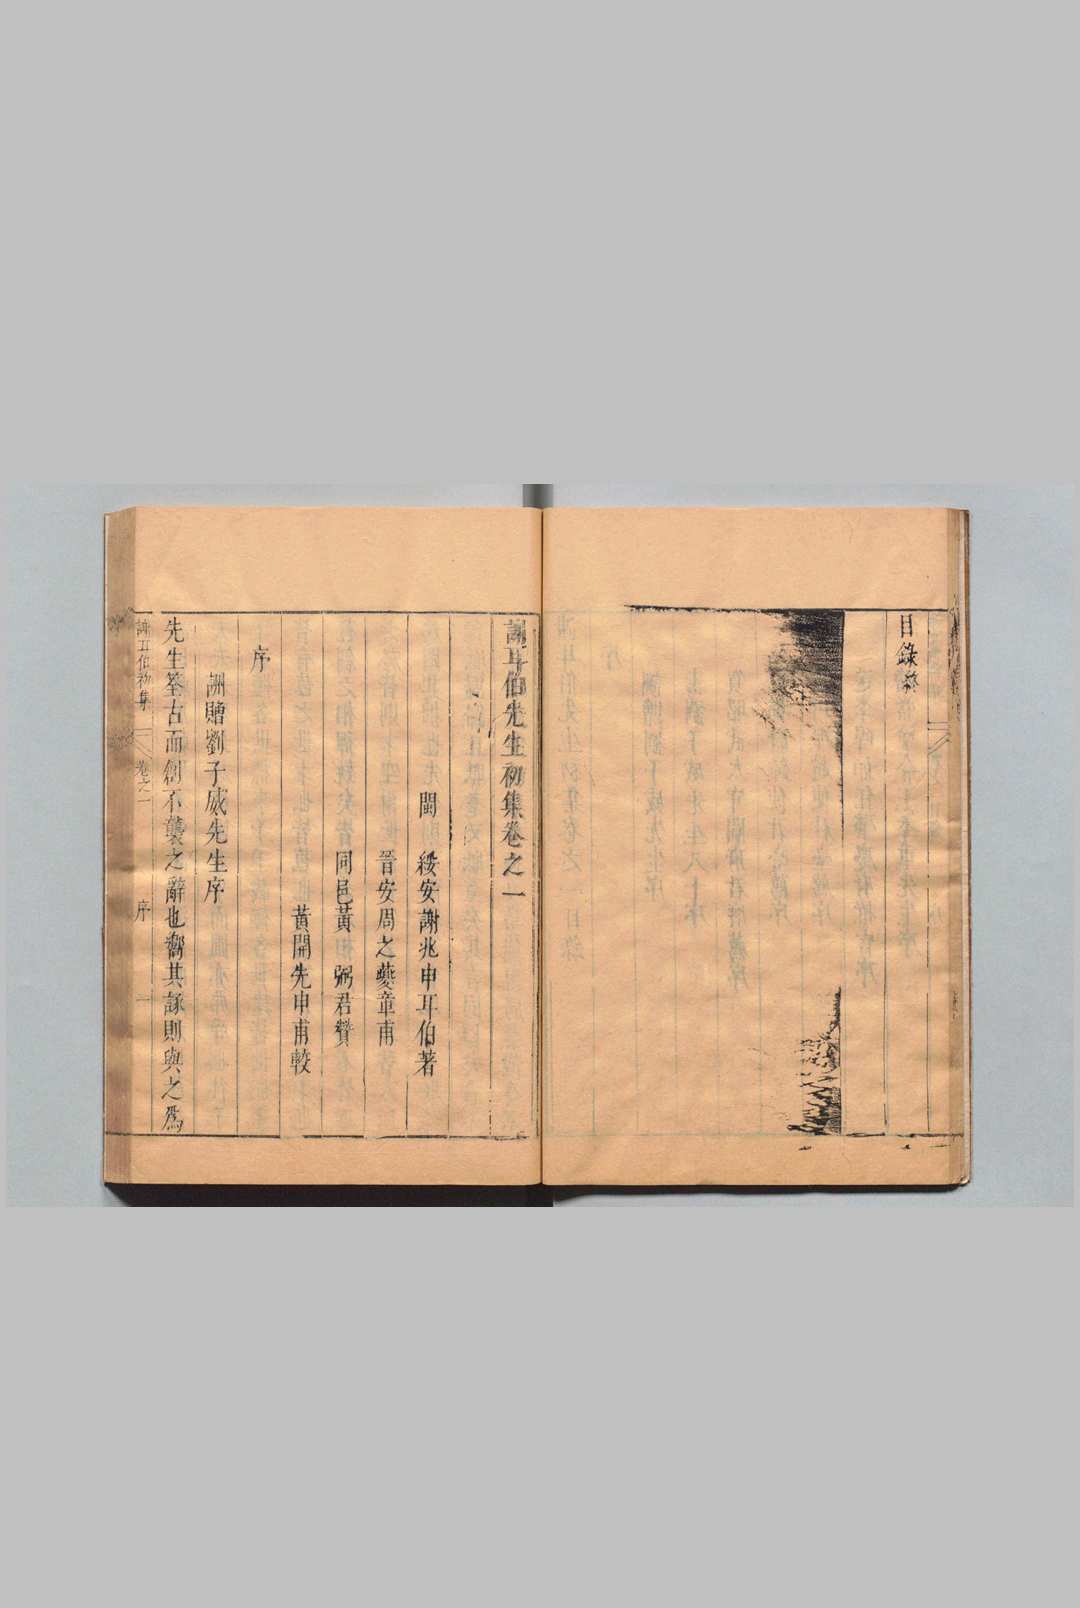 目錄終
謝耳伯先生初集卷之一
閩 綏安謝兆申耳伯著
晉安周之夔章甫
同邑黃和弼君贊
黃開先申甫較
序
詶贈劉子威先生序
先生筌古而創不襲之辭也嚮其詠則與之為
謝耳伯初集
卷之一
序
一